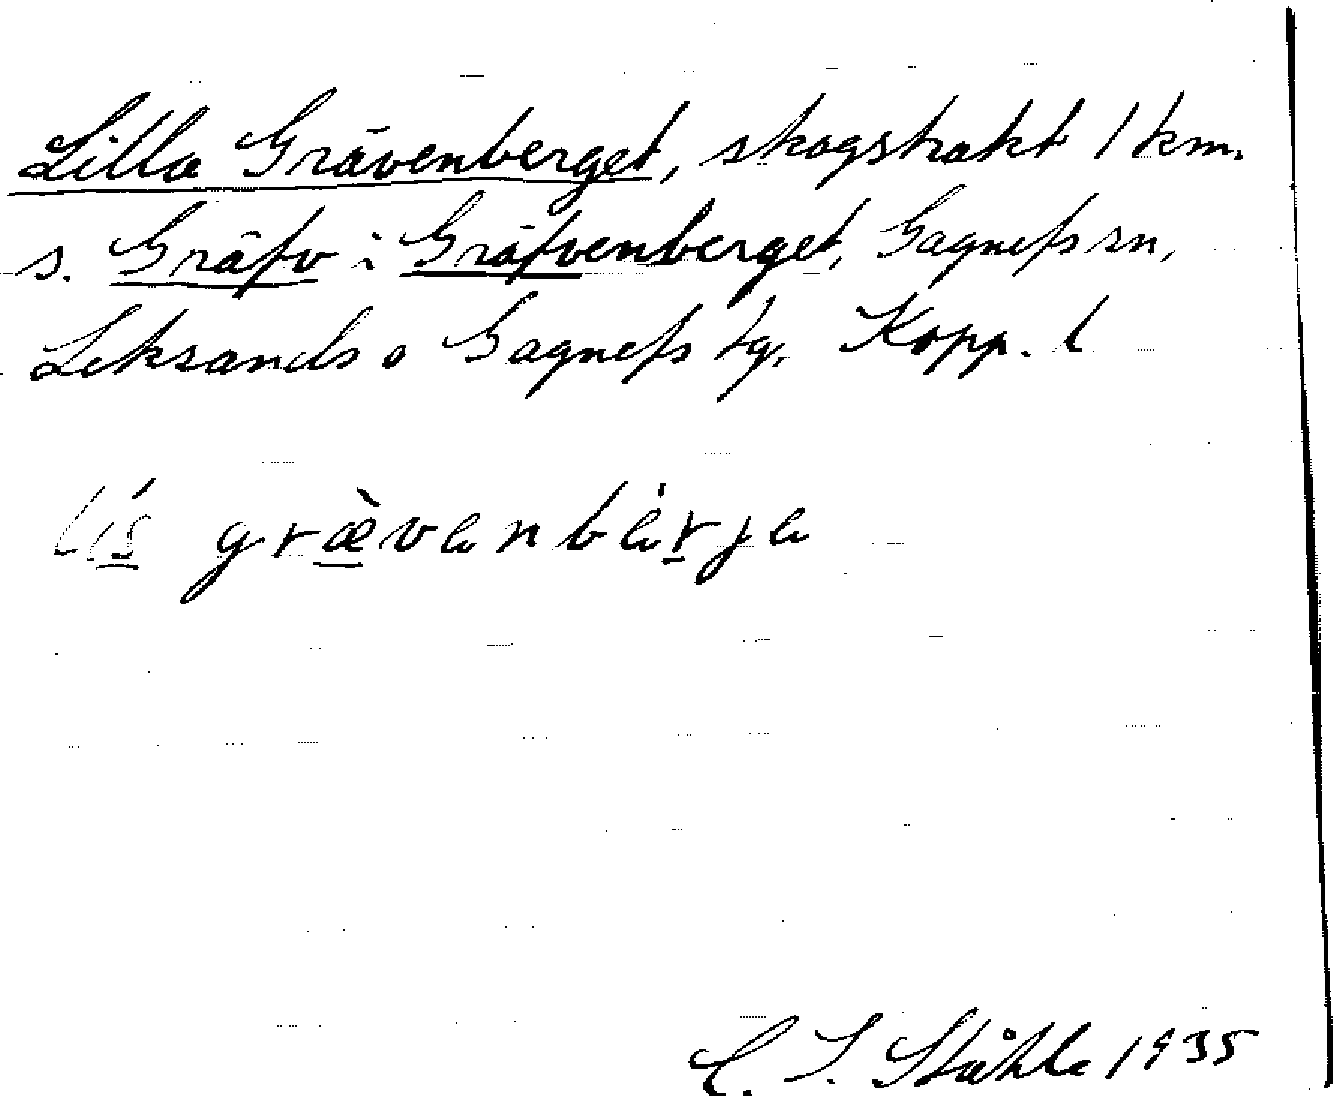 Lilla Grävenberget, skogstrakt 1 km.
s. Gräfv i Gräfvenberget, Gagnefs sn,
Leksands o Gagnefs tg. Kopp. l
lís græ̀venbèrje
C. I. Ståhle 1935